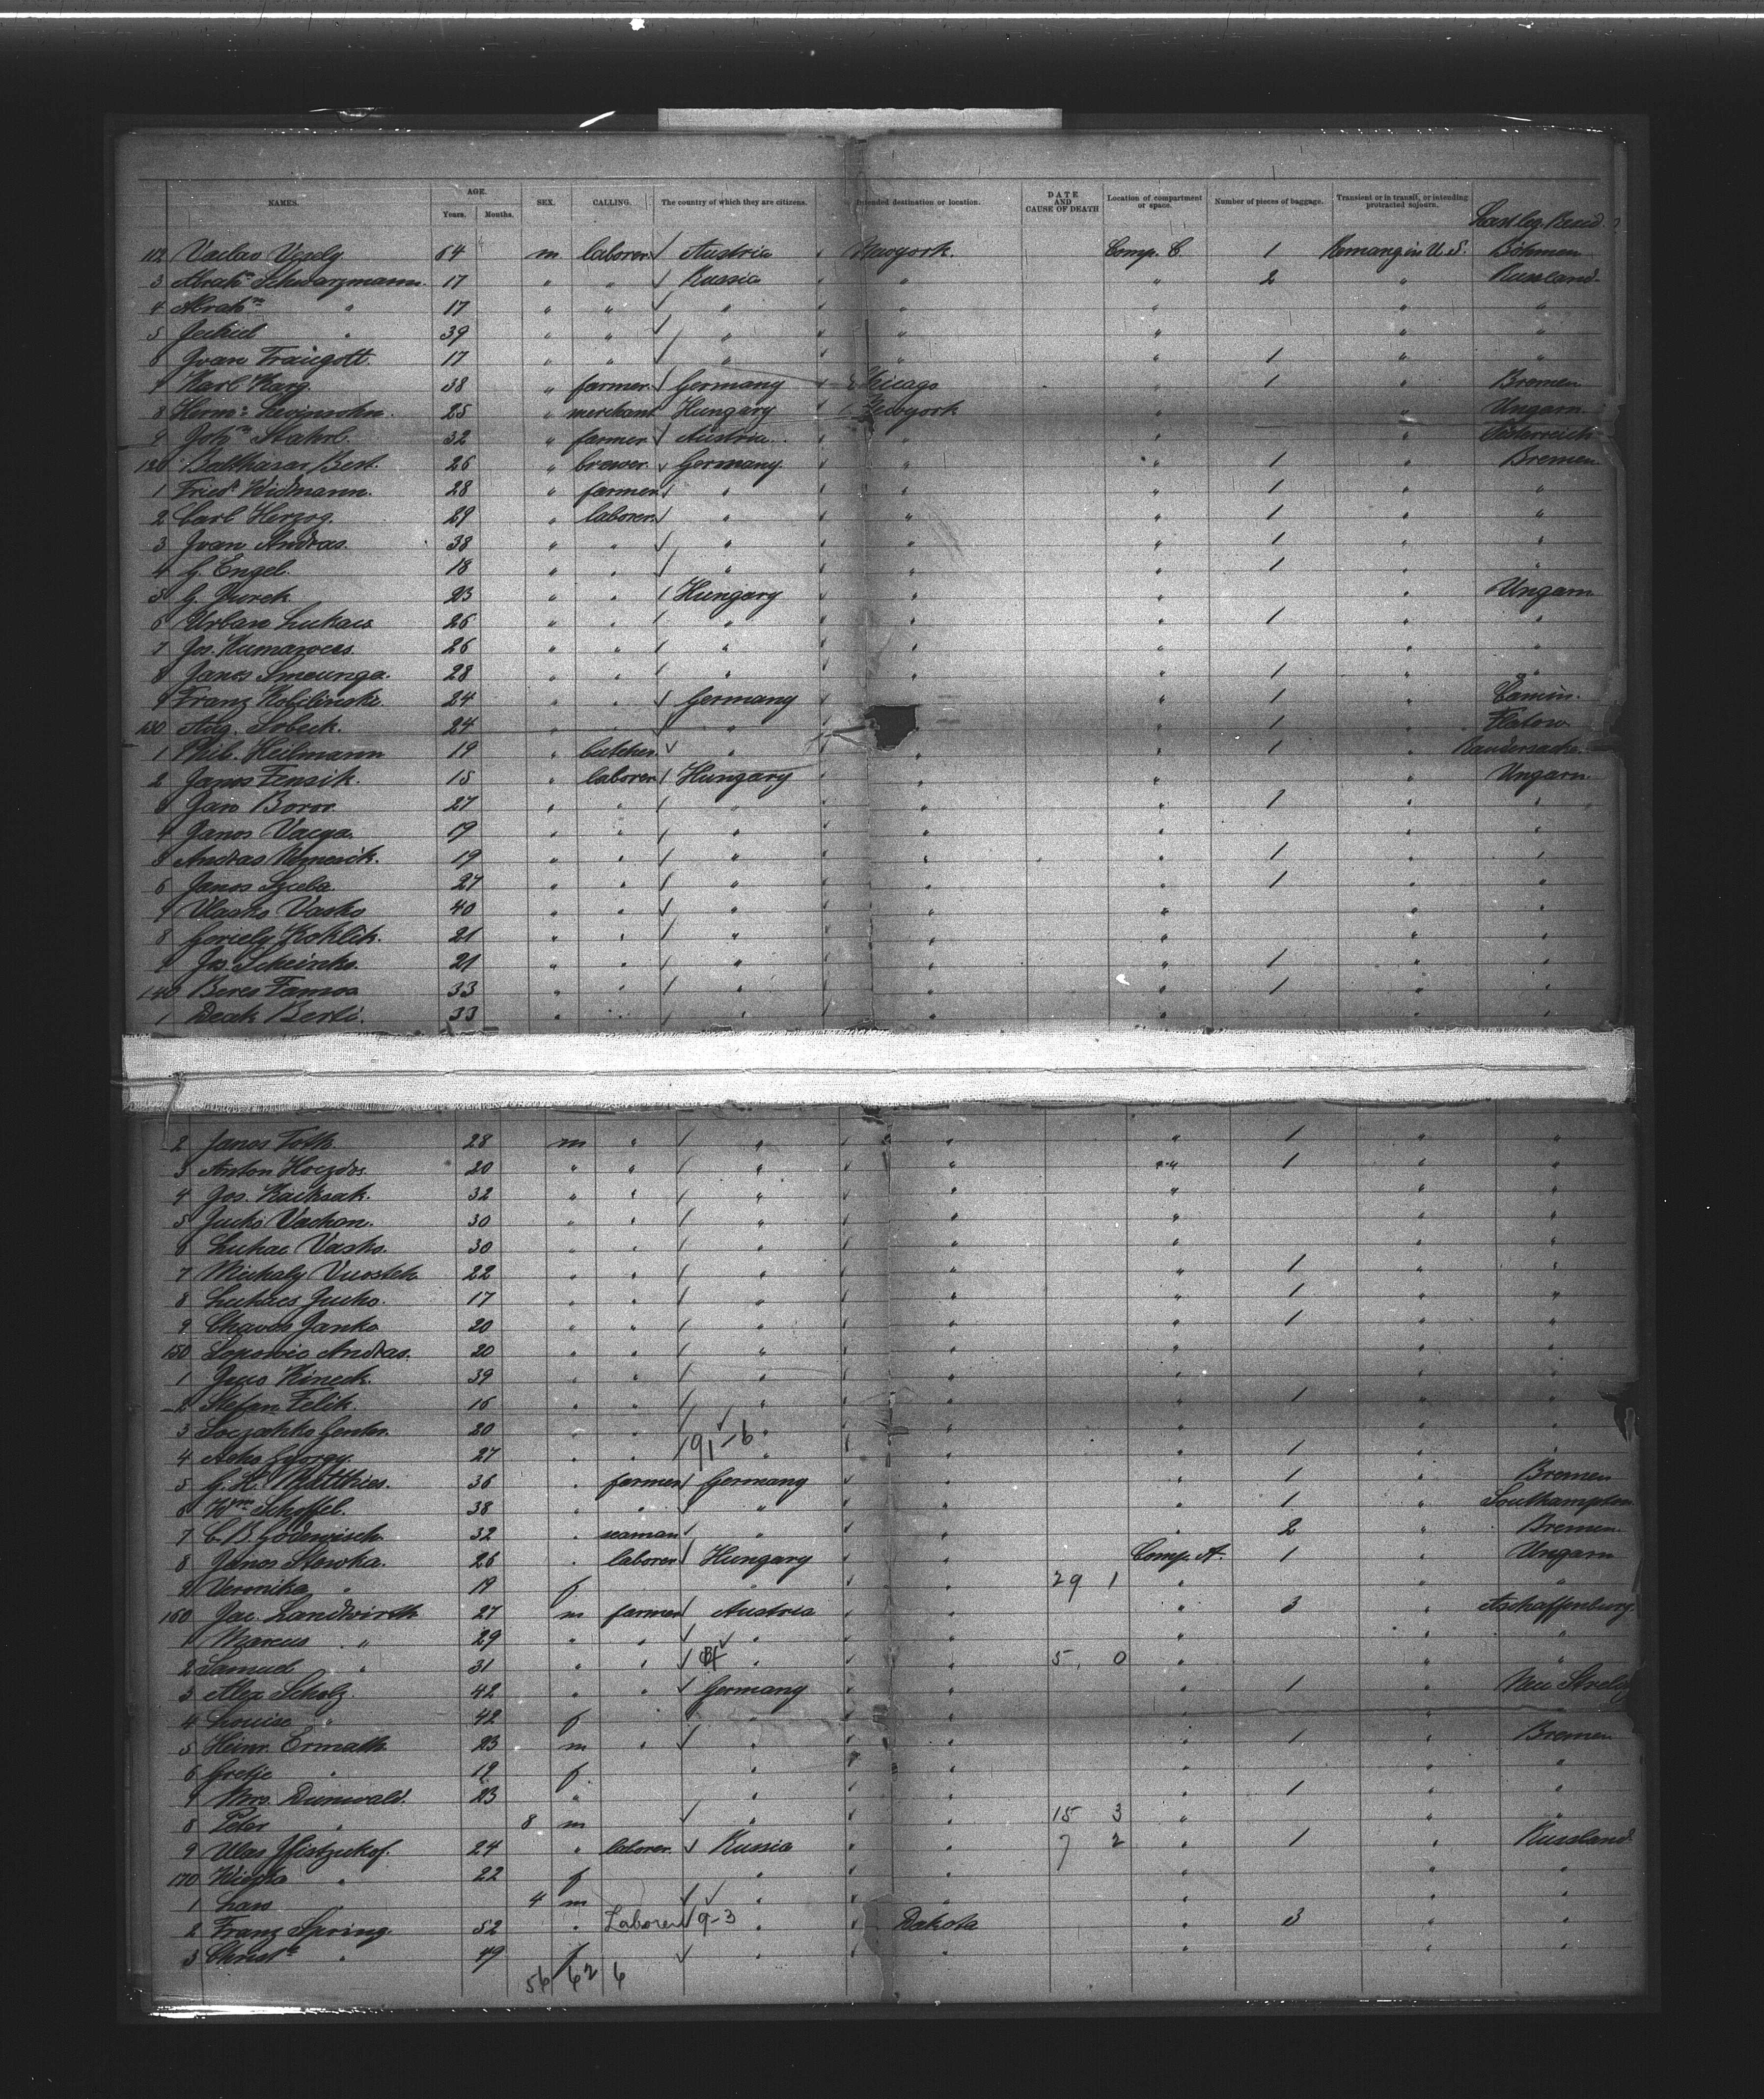 NAMES. AGE. Years. Months. SEX. CALLING. The country of which they are citizens. Intended destination or location. DATE AND CAUSE OF DEATH Location of compartment or space. Number of pieces of baggage. Transient or in transit, or intending protracted sojourn.
112 Vaclav Vesely 64 m laborer Austria Newyork. Comp. C. 1 Remang in U.S. Böhmen
3 Abrahm Schwarzmann. 17 " " Russia " " 2 " Russland
4 Abrahm " 17 " " " " " " "
5 Jechiel " 39 " " " " " " "
6 Ivan Traugott. 17 " " " " " 1 " "
7 Karl Karg. 38 " farmer Germany Chicago " 1 " Bremen
8 Herm: Levinsohn. 25 " merchant Hungary Newyork " " Ungarn
9 John Stahrl. 32 " farmer Austria " " " Österreich
120 Balthasar Best. 26 " brewer Germany " " 1 " Bremen
1 Friedr Widmann. 28 " farmer " " " 1 " "
2 Carl Herzog. 29 " laborer " " " 1 " "
3 Ivan Andras. 38 " " " " " 1 " "
4 G. Engel. 18 " " " " " 1 " "
5 G. Turek 23 " " Hungary " " " Ungarn
6 Urban Lukacs 26 " " " " " 1 " "
7 Jos. 26 " " " " " " "
8 Janos Smeunga. 28 " " " " " 1 " "
9 Franz Kobilinski 24 " " Germany " " 1 " Camin.
130 Aug. Sobeck. 24 " " " " " 1 " Flatow
1 Phil. Heilmann 19 " butcher " " " 1 " Randersacker
2 Janos Fensik. 15 " laborer Hungary " " " Ungarn
3 Jan Boror. 27 " " " " " 1 " "
4 Janos Vacya. 19 " " " " " " "
5 Andras 19 " " " " " 1 " "
6 Janos Szuba. 27 " " " " " 1 " "
7 Vlasko Vasko 40 " " " " " " "
8 Koklik. 21 " " " " " " "
9 Jos. Scheinko. 21 " " " " " 1 " "
140 Beres Tamos 33 " " " " " 1 " "
1 Deak Berti. 33 " " " " " " "
2 Janos Toth 28 m " " " " 1 " "
3 Anton Hoczdos. 20 " " " " " 1 " "
4 Jos. Kacksak. 32 " " " " " " "
5 Jucko Vachon. 30 " " " " " " "
6 Lukac Vasko. 30 " " " " " " "
7 Michaly Vuostek 22 " " " " " 1 " "
8 Lukacs Jucko. 17 " " " " " 1 " "
9 Chavos Janko 20 " " " " " 1 " "
150 Sopowic Andras. 20 " " " " " " "
1 Juco Kineck. 39 " " " " " " "
2 Stefan Felik. 16 " " " " " 1 " "
3 20 " " " " " " "
4 Asko Gyorgy. 27 " " 91-6 " " " 1 " "
5 G. H. Matthies. 36 " farmer Germany " " 1 " Bremen
6 Wm Scheffel. 38 " " " " " 1 " Southampton
7 C. B. Godewisch. 32 " seaman " " " 2 " Bremen
8 Janos Slowka. 26 " laborer Hungary " Comp. A. 1 " Ungarn
9 Veronika " 19 f " " 29 1 " " "
160 Jac. Landwirth 27 m farmer Austria " " 3 " Aschaffenburg.
1 Marcus " 29 " " " " " " "
2 Samuel " 31 " " " " 5 0 " " "
3 Alex Scholz. 42 " " Germany " " 1 " Neu Strelitz
4 Louise " 42 f " " " " "
5 Heinr. Ermath 23 m " " " " 1 " Bremen
6 Gretje " 19 f. " " " " "
7 Mrs. Dunwald. 23 " " " " 1 " "
8 Peter " 8 m " " 15 3 " " "
9 Ulas 24 " laborer. Russia " 7 2 " 1 " Russland
170 " 22 f " " " " "
1 " 4 m " " " " "
2 Franz Spring. 52 " Laborer 9-3 " Dakota " 3 " "
3 Christe " 49 f " " " " "
56 62 6